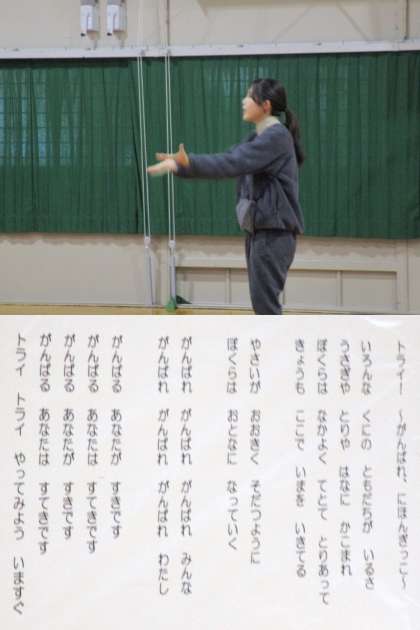 トライ！ ～がんばれ、にほんぎっこ～
いろんな くにの ともだちが いるさ
うさぎや とりや はなに かこまれ
ぼくらは なかよく てとて とりあって
きょうも ここで いまを いきてる
やさいが おおきく そだつように
ぼくらは おとなに なっていく
がんばれ がんばれ がんばれ みんな
がんばれ がんばれ がんばれ わたし
がんばる あなたが すきです
がんばる あなたは すてきです
がんばる あなたが すきです
がんばる あなたは すてきです
トライ トライ やってみよう いますぐ